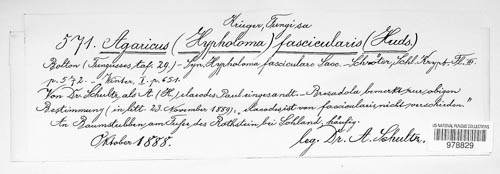 Krieger, Fungi sax
571. Agaricus (Hypholoma) fascicularis (Huds.)
Bolton (Fungusses taf. 29.) – Syn. Hypholoma fasciculare Sacc. – Schröter, Schl. Krypt. Fl. III.
p. 572. – Winter, I. p. 651.
Von Dr. Schultz als A. (H.) elaeodes Paul. eingesandt. – Bresadola bemerkt zu obigen
Bestimmung (in litt. 23. November 1889), "elaeodes ist von fascicularis nicht verschieden"
An Baumstubben am Fusse des Rothstein bei Sohland, häufig.
Oktober 1888. leg. Dr. A. Schultz.
US NATIONAL FUNGUS COLLECTIONS
978829